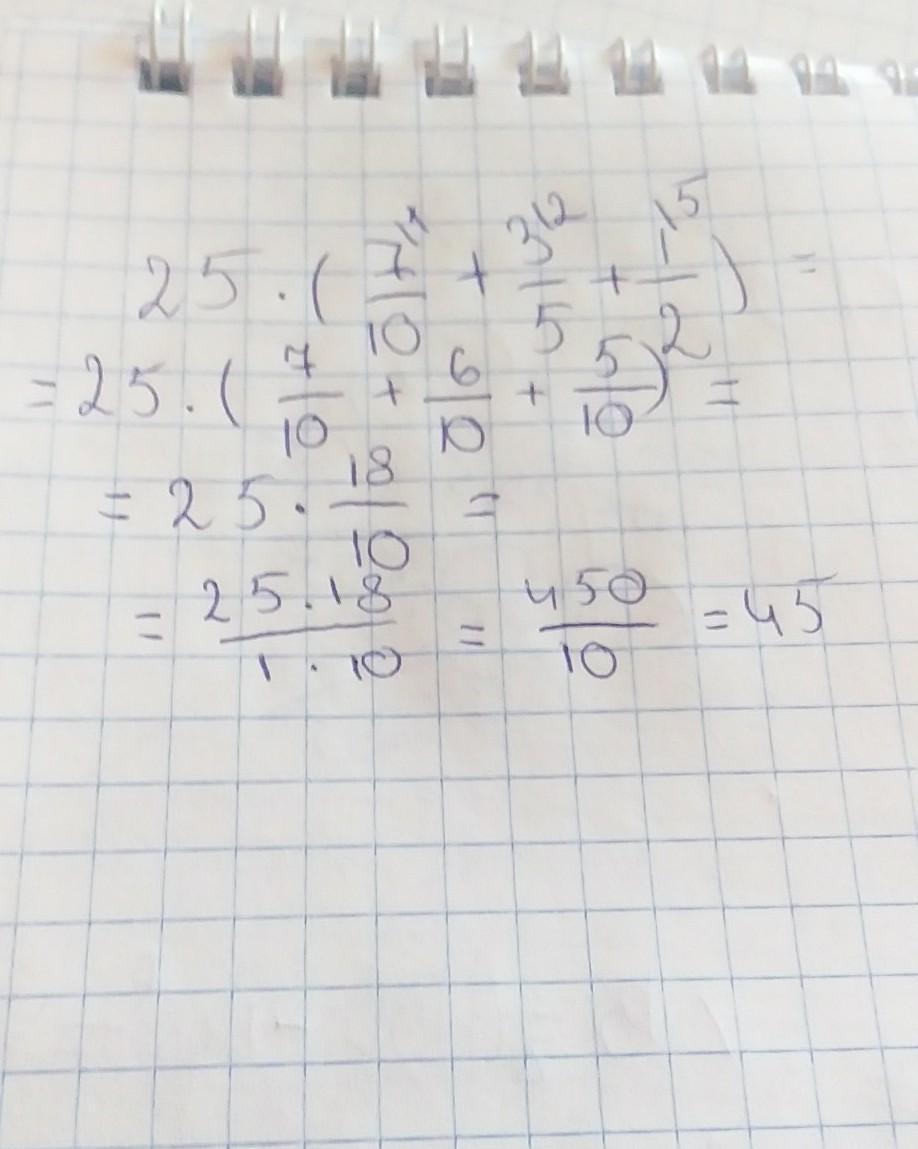 25 · ( 7/10 + 3/5 + 1/2 ) =
= 25 · ( 7/10 + 6/10 + 5/10 ) =
= 25 · 18/10 =
= 25 · 18/1 · 10 = 450/10 = 45